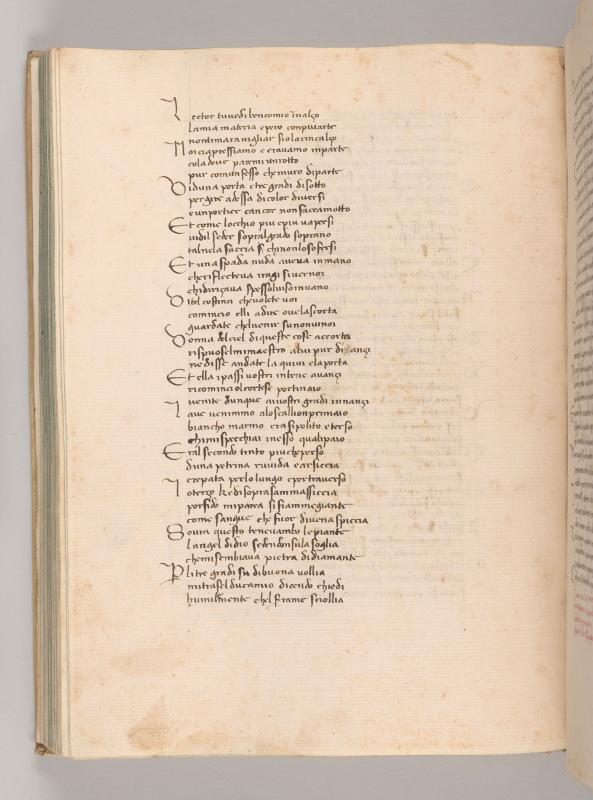 Lector tu vedi ben comio inalço
La mia materia e pero conpiu arte
non timaravigliar sio la rincalço
Noi ciapressiamo e eravamo inparte
cola dove paremi inrotto
pur comun fesso che muro diparte
Vidi una porta e tre gradi disotto
per gire adessa dicolor diversi
e un portier cancor non facea motto
Et come locchio piu e piu vapersi
vidil seder sopral grado soprano
tal nela faccia chi non lo sofersi
Et una spada nuda aveva in mano
che riflecteva iragi si ver noi
chi diriçava spesso il viso invano
Ditel costinci che volete voi
comincio elli a dire ove la scorta
guardate chel venir su non vi noi
Donna del ciel di queste cose accorta
rispuosel mi maestro a lui pur diançi
ne disse andate la quivi e la porta
Et ella ipassi vostri in bene avançi
ricomincio il cortese portinaio
venite dunque a vostri gradi innançi
La ve venimmo alo scallion primaio
biancho marmo era si polito e terso
chi mi specchiai in esso qual i paio
Eral secondo tinto piu che perso
duna petrina ruvida e arsiccia
crepata per lo lungo e per traverso
Lo terço che di sopra sammassiccia
porfido mi parea si fiammegiante
come sangue che fuor di vena spiccia
Sovra questo tenevambo le piante
langel didio sedendo in su la soglia
che mi sembiava pietra di diamante
Per li tre gradi su di buona vollia
mi trasel duca mio dicendo chiedi
humilmente chel serrame sciollia